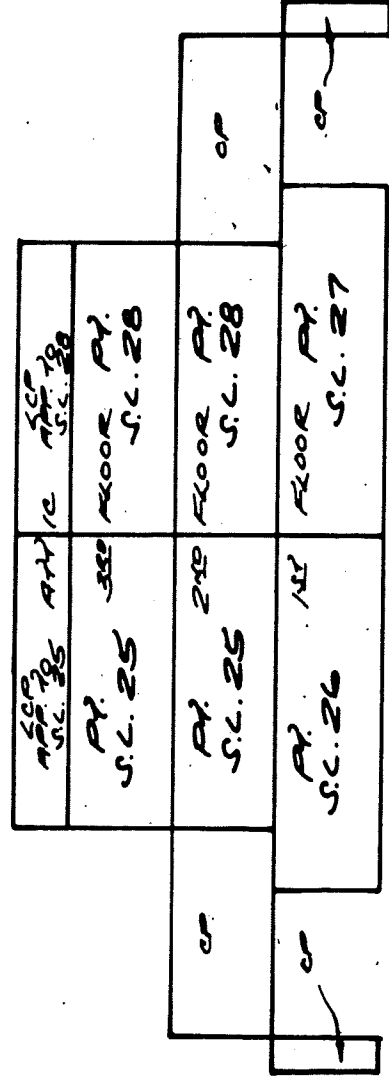 LCP
APP. TO
S.L. 25
ATTIC
LCP
APP. TO
S.L. 28
PT.
S.L. 25
3RD FLOOR
PT.
S.L. 28
CP
PT.
S.L. 25
2ND FLOOR
PT.
S.L. 28
CP
CP
PT.
S.L. 26
1ST FLOOR
PT.
S.L. 27
CP